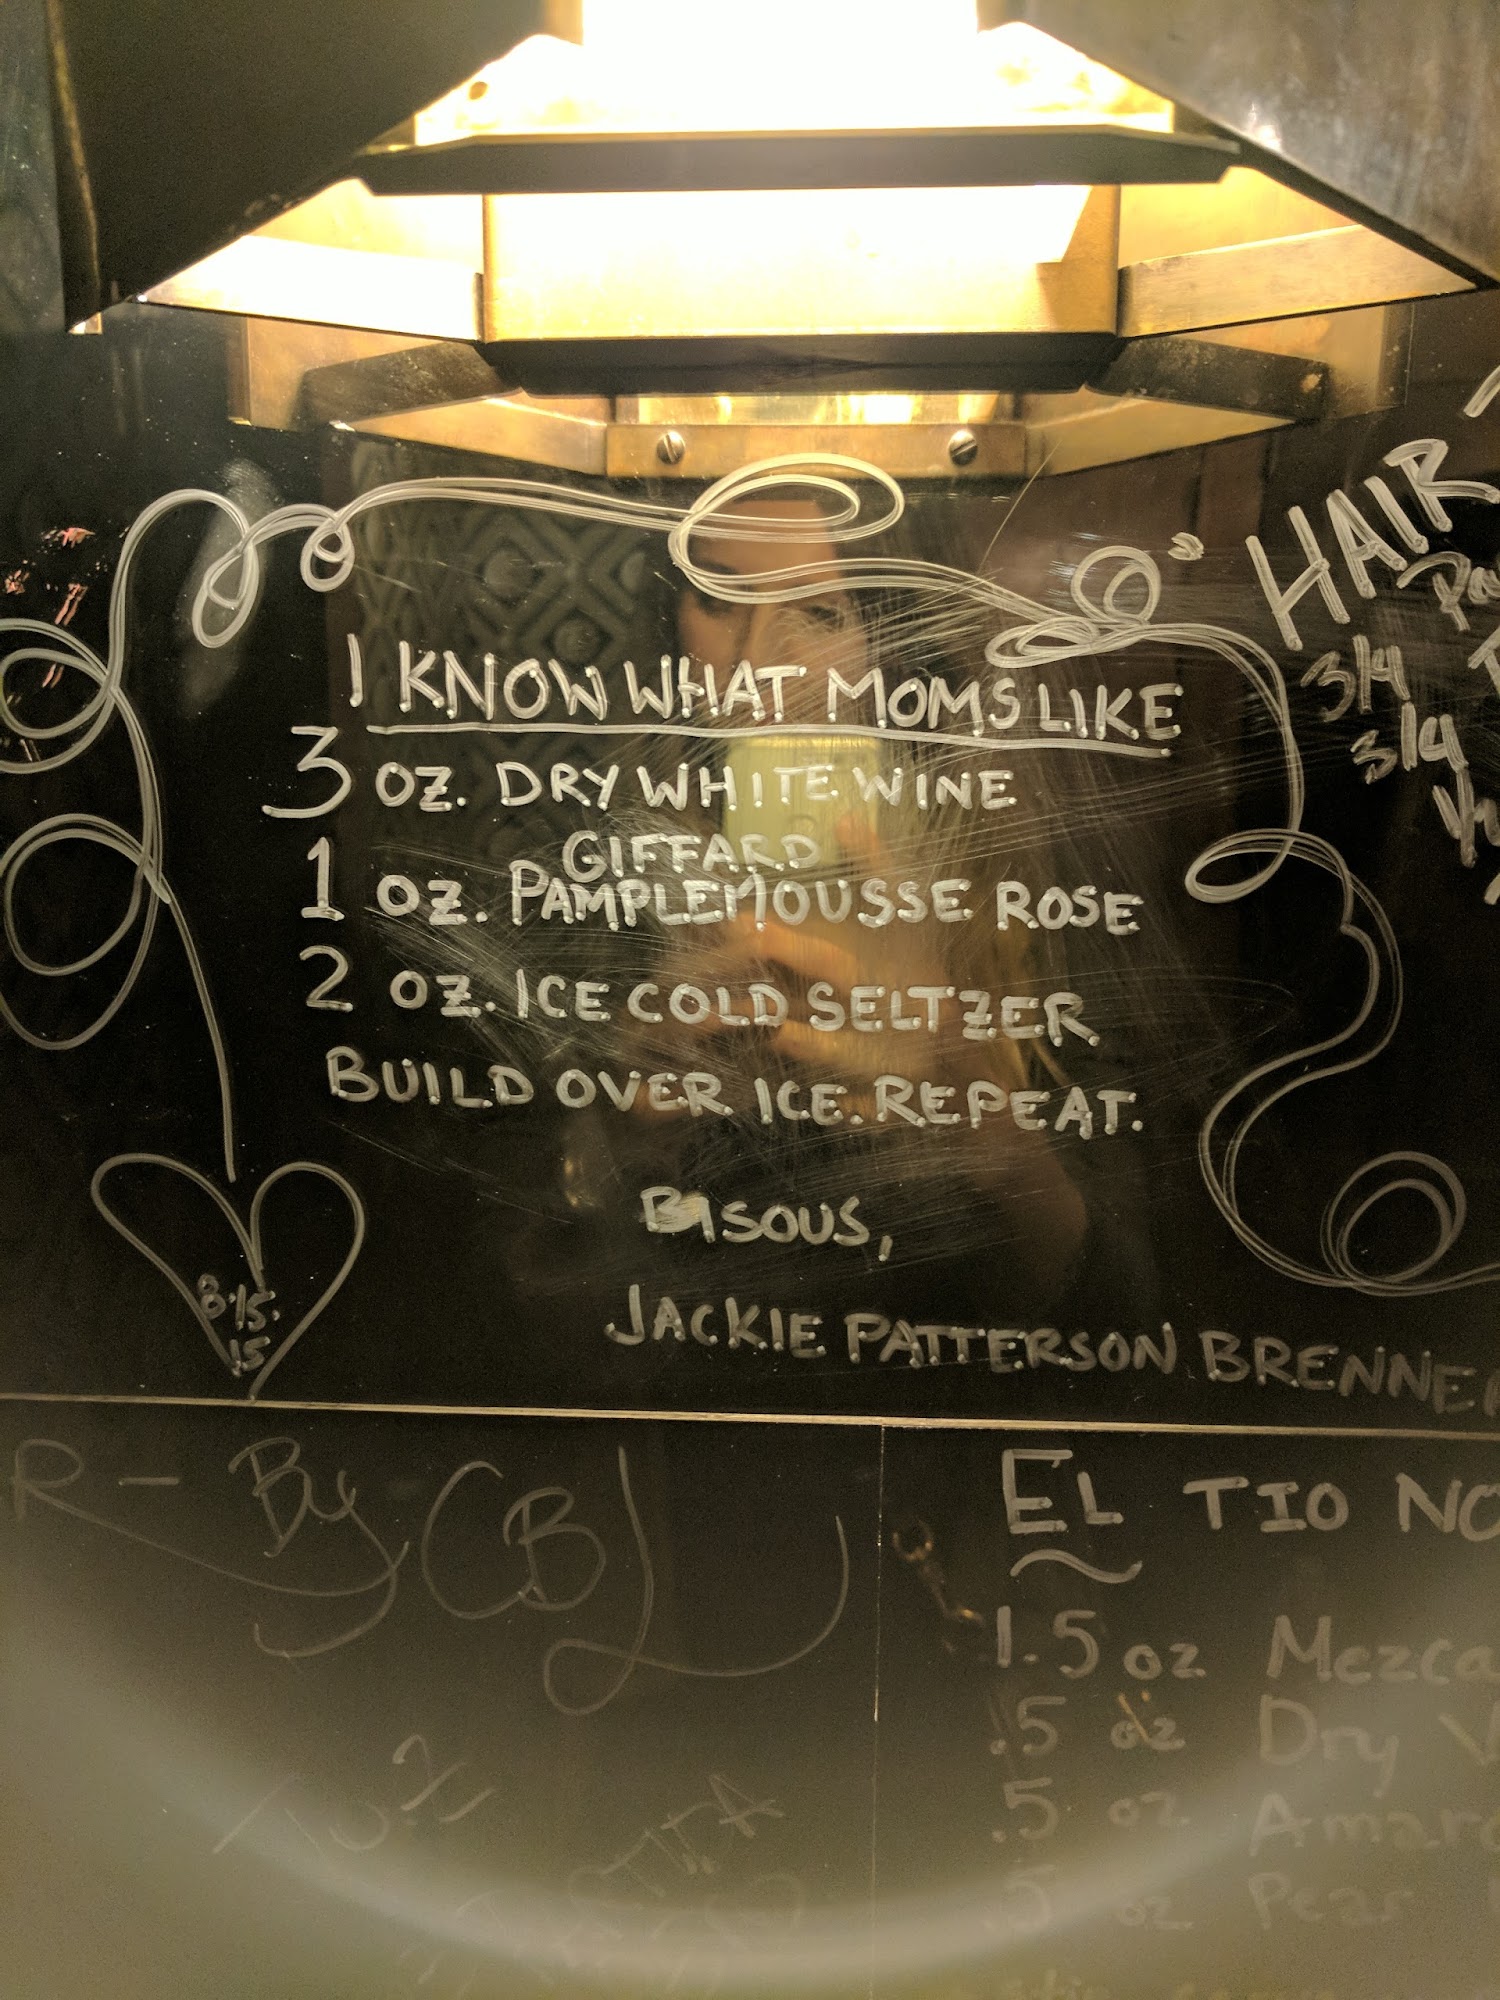 I KNOW WHAT MOMS LIKE
3 OZ. DRY WHITE WINE
1 OZ. GIFFARD PAMPLEMOUSSE ROSE
2 OZ. ICE COLD SELTZER
BUILD OVER ICE. REPEAT.
BISOUS,
JACKIE PATTERSON BRENNER
8.15.
15
HAIR
3/4
3/4
R - By CBL
EL TIO
1.5 oz
.5 oz Dry
.5 oz
.5 oz Pear